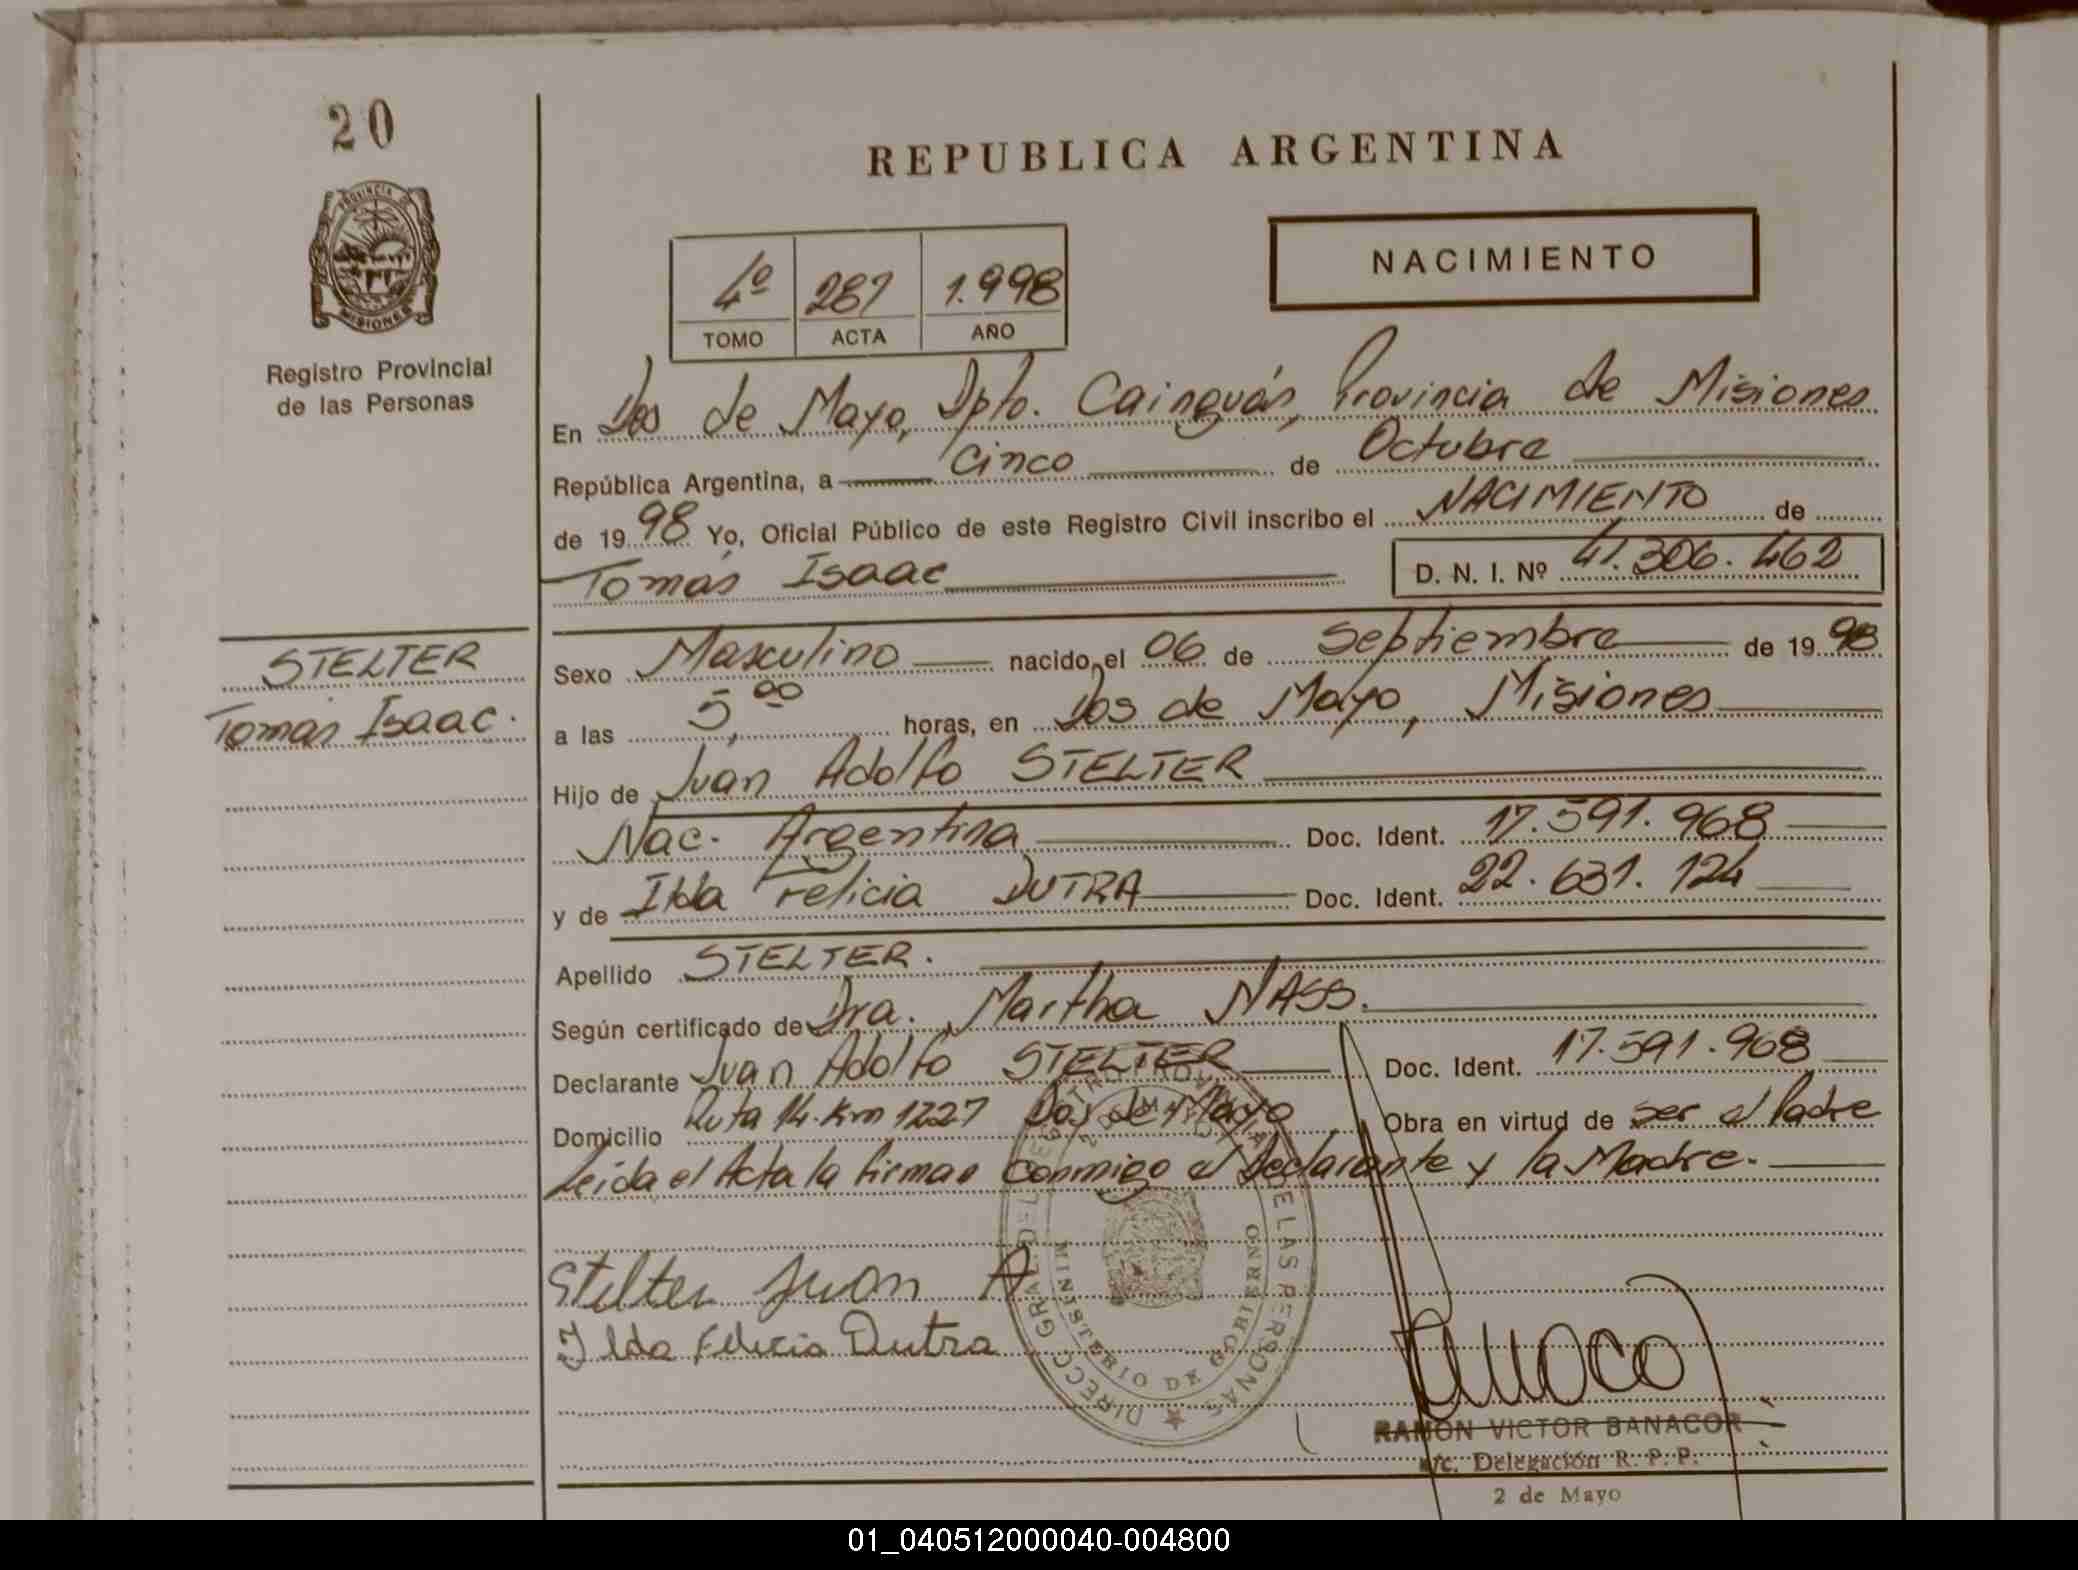 20
PROVINCIA DE
MISIONES
Registro Provincial
de las Personas
REPUBLICA ARGENTINA
NACIMIENTO
4º 287 1.998
TOMO ACTA AÑO
En Dos de Mayo, Dpto. Cainguás, Provincia de Misiones
República Argentina, a Cinco de Octubre
de 1998 Yo, Oficial Público de este Registro Civil inscribo el NACIMIENTO de
Tomás Isaac D. N. I. Nº 41.306.462
STELTER
Tomás Isaac.
Sexo Masculino nacido el 06 de Septiembre de 1998
a las 5,00 horas, en Dos de Mayo, Misiones
Hijo de Juan Adolfo STELTER
Nac. Argentina Doc. Ident. 17.591.968
y de Ilda Felicia DUTRA Doc. Ident. 22.631.124
Apellido STELTER.
Según certificado de Dra. Martha NASS.
Declarante Juan Adolfo STELTER Doc. Ident. 17.591.968
Domicilio Ruta 14. Km 1227 Dos de Mayo Obra en virtud de ser el Padre
Leída el Acta la firman conmigo el Declarante y la Madre.
Stelter Juan A
Ilda Felicia Dutra
DIRECC GRAL. DEL REGISTRO PROVINCIAL DE LAS PERSONAS
MINISTERIO DE GOBIERNO
2 DE MAYO
RAMON VICTOR BANACOR
a/c. Delegación R. P. P.
2 de Mayo
01_040512000040-004800